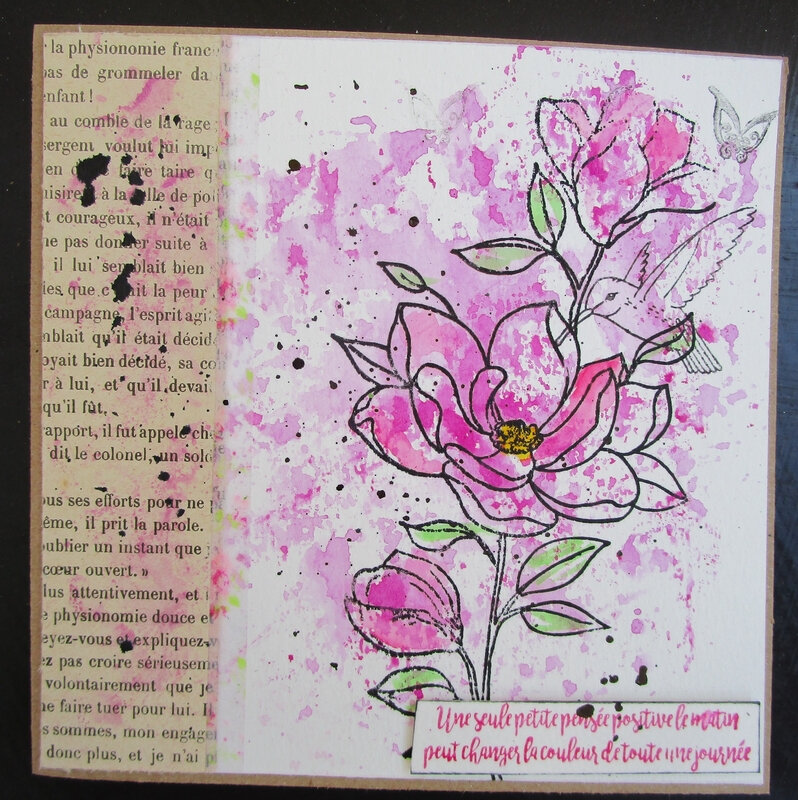 r la physionomie franc
pas de grommeler da
enfant !
au comble de la rage
sergent voulut lui imp
en faire taire q
à la de
t courageux, il n'était
ne pas donner suite à
il lui semblait bien
les que c' la peur
campagne, l'esprit agi
mblait qu'il était décid
oyait bien décidé, sa co
r à lui, et qu'il devai
qu'il fût.
rapport, il fut appelé ch
dit le colonel, un sold
ous ses efforts pour ne
ême, il prit la parole.
oublier un instant que
cœur ouvert. »
lus attentivement, et
e physionomie douce et
eyez-vous et expliquez-
ez pas croire sérieuseme
volontairement que je
ne faire tuer pour lui. Il
s sommes, mon engage
donc plus, et je n'ai p
Une seule petite pensée positive le matin
peut changer la couleur de toute une journée